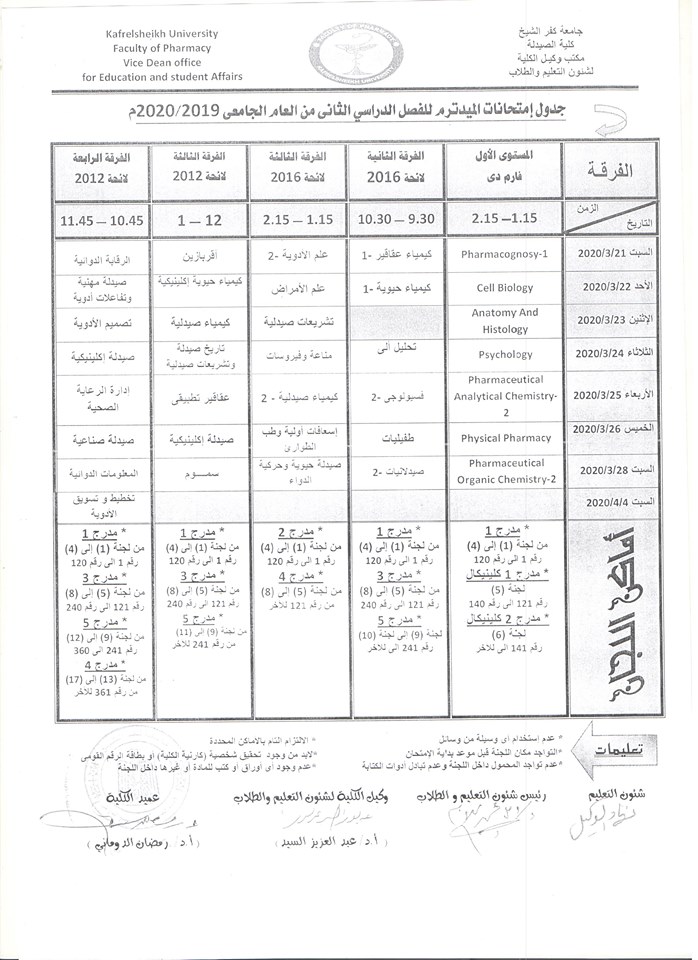 Kafrelsheikh University
Faculty of Pharmacy
Vice Dean office
for Education and student Affairs
جامعة كفر الشيخ
كلية الصيدلة
مكتب وكيل الكلية
لشئون التعليم والطلاب
جدول إمتحانات الميدترم للفصل الدراسي الثانى من العام الجامعى 2020/2019م
الفرقة
المستوى الأول
فارم دى
الفرقة الثانية
لائحة 2016
الفرقة الثالثة
لائحة 2016
الفرقة الثالثة
لائحة 2012
الفرقة الرابعة
لائحة 2012
الزمن
التاريخ
2.15 – 1.15
10.30 – 9.30
2.15 – 1.15
1 – 12
11.45 – 10.45
السبت 2020/3/21
Pharmacognosy-1
كيمياء عقاقير -1
علم الادوية -2
أقربازين
الرقابة الدوائية
الأحد 2020/3/22
Cell Biology
كيمياء حيوية -1
علم الأمراض
كيمياء حيوية إكلينيكية
صيدلة مهنية
وتفاعلات أدوية
الإثنين 2020/3/23
Anatomy And
Histology
تشريعات صيدلية
كيمياء صيدلية
تصميم الأدوية
الثلاثاء 2020/3/24
Psychology
تحليل ألى
مناعة وفيروسات
تاريخ صيدلة
وتشريعات صيدلية
صيدلة إكلينيكية
الأربعاء 2020/3/25
Pharmaceutical
Analytical Chemistry-
2
فسيولوجى -2
كيمياء صيدلية - 2
عقاقير تطبيقى
إدارة الرعاية
الصحية
الخميس 2020/3/26
Physical Pharmacy
طفيليات
إسعافات أولية وطب
الطوارئ
صيدلة إكلينيكية
صيدلة صناعية
السبت 2020/3/28
Pharmaceutical
Organic Chemistry-2
صيدلانيات -2
صيدلة حيوية وحركية
الدواء
سمـــوم
المعلومات الدوائية
السبت 2020/4/4
تخطيط و تسويق
الأدوية
أماكن اللجان
* مدرج 1
من لجنة (1) إلى (4)
رقم 1 الى رقم 120
* مدرج 1 كلينيكال
لجنة (5)
رقم 121 الى رقم 140
* مدرج 2 كلينيكال
لجنة (6)
رقم 141 الى للآخر
* مدرج 1
من لجنة (1) إلى (4)
رقم 1 الى رقم 120
* مدرج 3
من لجنة (5) إلى (8)
رقم 121 الى رقم 240
* مدرج 5
لجنة (9) الى (10)
رقم 241 الى للآخر
* مدرج 2
من لجنة (1) إلى (4)
رقم 1 الى رقم 120
* مدرج 4
من لجنة (5) إلى (8)
من رقم 121 للآخر
* مدرج 1
من لجنة (1) إلى (4)
رقم 1 الى رقم 120
* مدرج 3
من لجنة (5) إلى (8)
رقم 121 الى رقم 240
* مدرج 5
من لجنة (9) إلى (11)
من رقم 241 للآخر
* مدرج 1
من لجنة (1) إلى (4)
رقم 1 الى رقم 120
* مدرج 3
من لجنة (5) إلى (8)
رقم 121 الى رقم 240
* مدرج 5
من لجنة (9) إلى (12)
رقم 241 الى 360
* مدرج 4
من لجنة (13) إلى (17)
من رقم 361 للآخر
تعليمات
* عدم إستخدام اى وسيلة من وسائل
* التواجد مكان اللجنة قبل موعد بداية الامتحان
* عدم تواجد المحمول داخل اللجنة وعدم تبادل أدوات الكتابة
* الالتزام التام بالاماكن المحددة
*لابد من وجود تحقيق شخصية (كارنية الكلية) أو بطاقة الرقم القومى
*عدم وجود أى أوراق أو كتب للمادة أو غيرها داخل اللجنة
شئون التعليم
رئيس شئون التعليم و الطلاب
وكيل الكلية لشئون التعليم والطلاب
عميد الكلية
(أ.د/ عبد العزيز السيد)
(أ.د/ رمضان الدوماني)